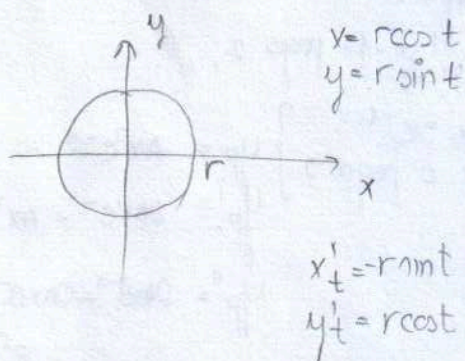 y
x = r cos t
y = r sin t
r
x
x't = -r sin t
y't = r cos t